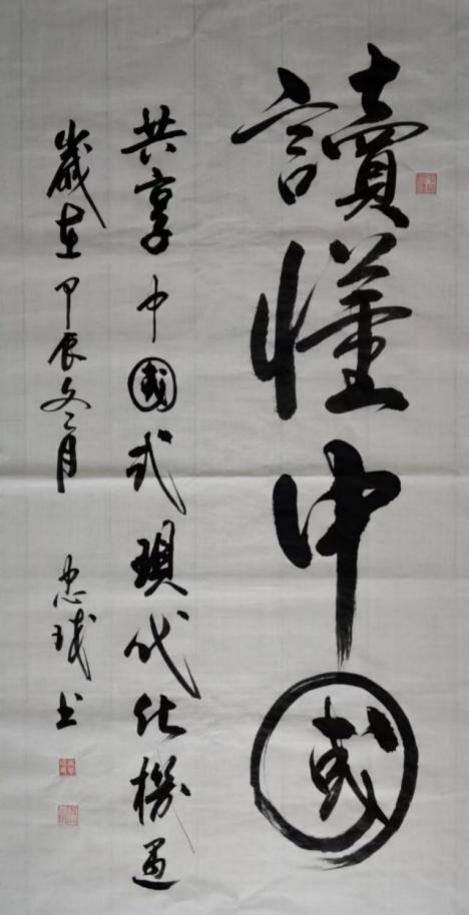 讀懂中國
共享中國式現代化機遇
歲在甲辰冬月 忠誠書